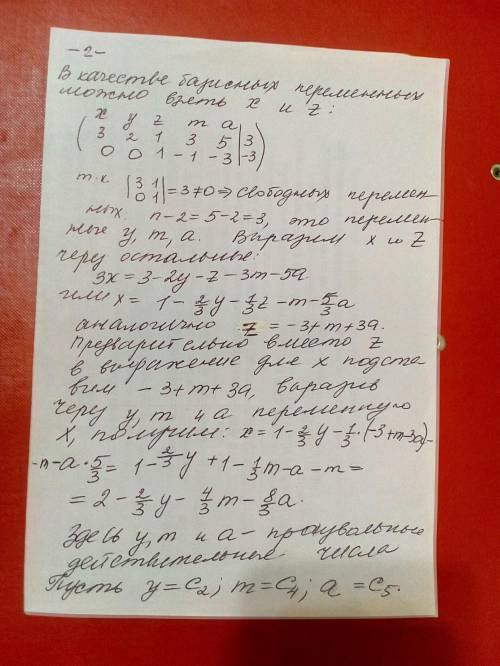 -2-
В качестве базисных переменных
можно взять x и z:
x y z m a
( 3 2 1 3 5 | 3
0 0 1 -1 -3 | -3 )
т.к |3 1
0 1| = 3 ≠ 0 ⇒ свободных перемен-
ных: n-2 = 5-2 = 3, это перемен-
ные y, m, a. Выразим x и z
через остальные:
3x = 3 - 2y - z - 3m - 5a
или x = 1 - 2/3 y - 1/3 z - m - 5/3 a
аналогично z = -3 + m + 3a.
Предварительно вместо z
в выражение для x подста
вим -3 + m + 3a, выразив
через y, m и a переменную
x, получим: x = 1 - 2/3 y - 1/3 · (-3 + m - 3a) -
- m - a · 5/3 = 1 - 2/3 y + 1 - 1/3 m - a - m =
= 2 - 2/3 y - 4/3 m - 8/3 a.
Здесь y, m и a - произвольные
действительные числа
Пусть y = C₂; m = C₄; a = C₅.